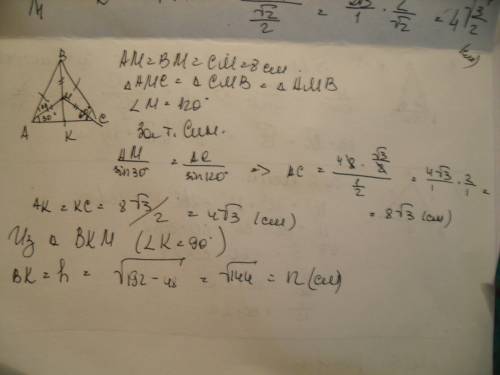 √2/2 = /1 · 2/√2 = 4√3/2 (см)
B
AM = BM = CM = 8 см.
△AMC = △CMB = △AMB
∠M = 120°
M
30°
A K C
За т. Син.
AM/sin30° = AC/sin120° => AC = (48 · √3/2)/(1/2) = 4√3/1 · 2/1 =
= 8√3 (см)
AK = KC = 8√3/2 = 4√3 (см)
Из △ BKM (∠K = 90°)
BK = h = √192 - 48 = √144 = 12 (см)